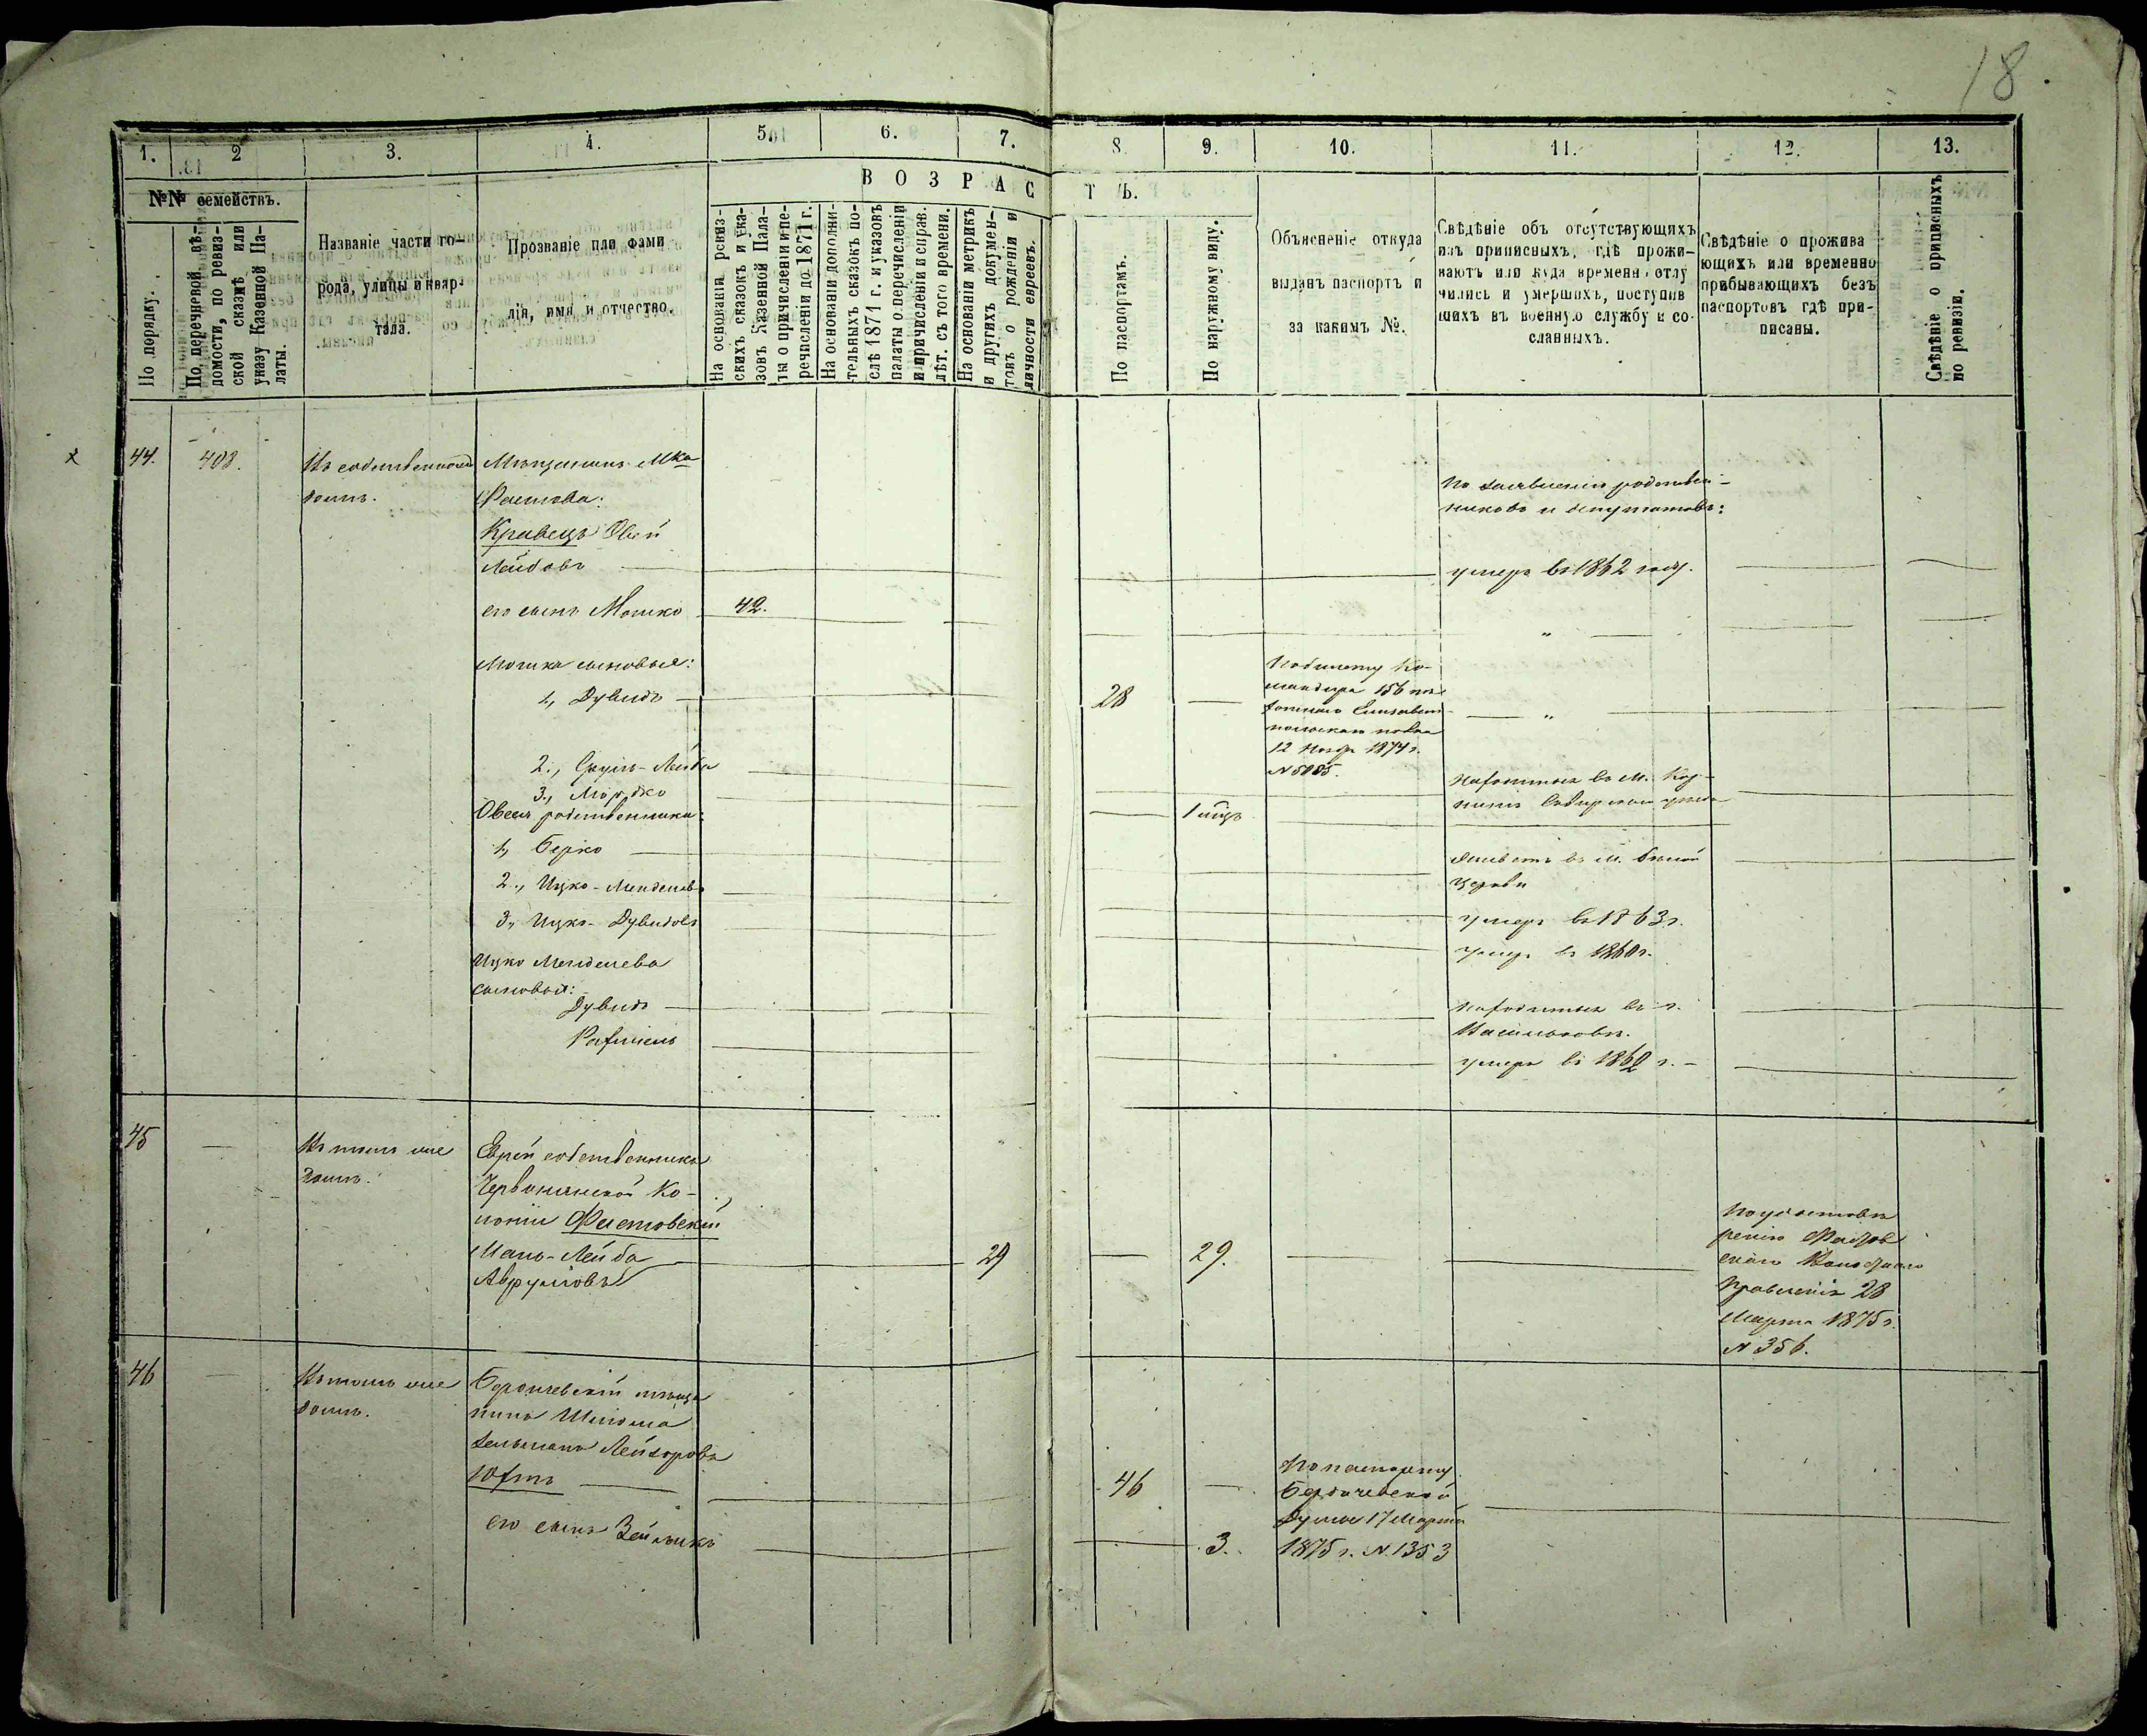 18
1. 2 3. 4. 5. 6. 7. 8. 9. 10. 11. 12. 13.
№№ семействъ.
По порядку.
По перечневой вѣ-
домости, по ревиз-
ской сказкѣ или
указу Казенной Па-
латы.
Названіе части го-
рода, улицы и квар-
тала.
Прозваніе или фами
лія, имя и отчество.
ВОЗРАСТЪ.
На основаніи ревиз-
скихъ сказокъ и ука-
зовъ Казенной Пала-
ты о причисленіи и пе-
речисленіи до 1871 г.
На основаніи дополни-
тельныхъ сказокъ по-
слѣ 1871 г. и указовъ
палаты о перечисленіи
и причисленіи и справ.
лѣт. съ того времени.
На основаніи метрикъ
и другихъ докумен-
товъ о рожденіи и
личности евреевъ.
По паспортамъ.
По наружному виду.
Объясненіе откуда
выданъ паспортъ и
за какимъ №.
Свѣдѣніе объ отсутствующихъ
изъ приписныхъ, гдѣ прожи-
ваютъ или куда временно отлу
чились и умершихъ, поступив
шихъ въ военную службу и со-
сланныхъ.
Свѣдѣніе о прожива
ющихъ или временно
прибывающихъ безъ
паспортовъ гдѣ при-
писаны.
Свѣдѣніе о приписныхъ
по ревизіи.
44. 408.
Въ собственномъ
домѣ.
Мѣщанинъ М-ка
Фастова:
Кравецъ Овсей
Лейбовъ
По заявленію родствен-
никовъ и депутатовъ:
умеръ въ 1862 году.
его сынъ Мошко 42. "
Мошка сыновья:
1, Дувидъ 28 "
Командира 156 пѣ
хотнаго Елисаветъ
польскаго полка
12 Нояб 1874 г.
2., Сруль-Лейба
3., Мордко 1 мѣс
Находится въ м.
Сквирскаго уѣзда
Овсея родственники:
1, Берко
живетъ въ м. Бѣлой
Церкви
2., Ицко-Менделевъ
умеръ въ 1863 г.
3, Ицко-Дувидовъ
умеръ въ 1860 г.
Ицко Менделева
сыновья:
Дувидъ
находится въ г.
Васильковѣ.
Рахмиель
умеръ въ г.
45
Въ томъ же
домѣ.
Еврей собственникъ
Червонянской Ко-
лоніи Фастовскій
Лейба
Аврумовъ
29 29.
По удостовѣ
ренію Фастов
скаго Волостнаго
Правленія 28
Марта 1875 г.
N 356.
46
Въ томъ же
домѣ.
Бердичевскій мѣща
нинъ Шлиома
Зельманъ Лейзоровъ
46
По паспорту
Бердичевской
Думы 17 Марта
1875 г. N 1353
его сынъ 3.